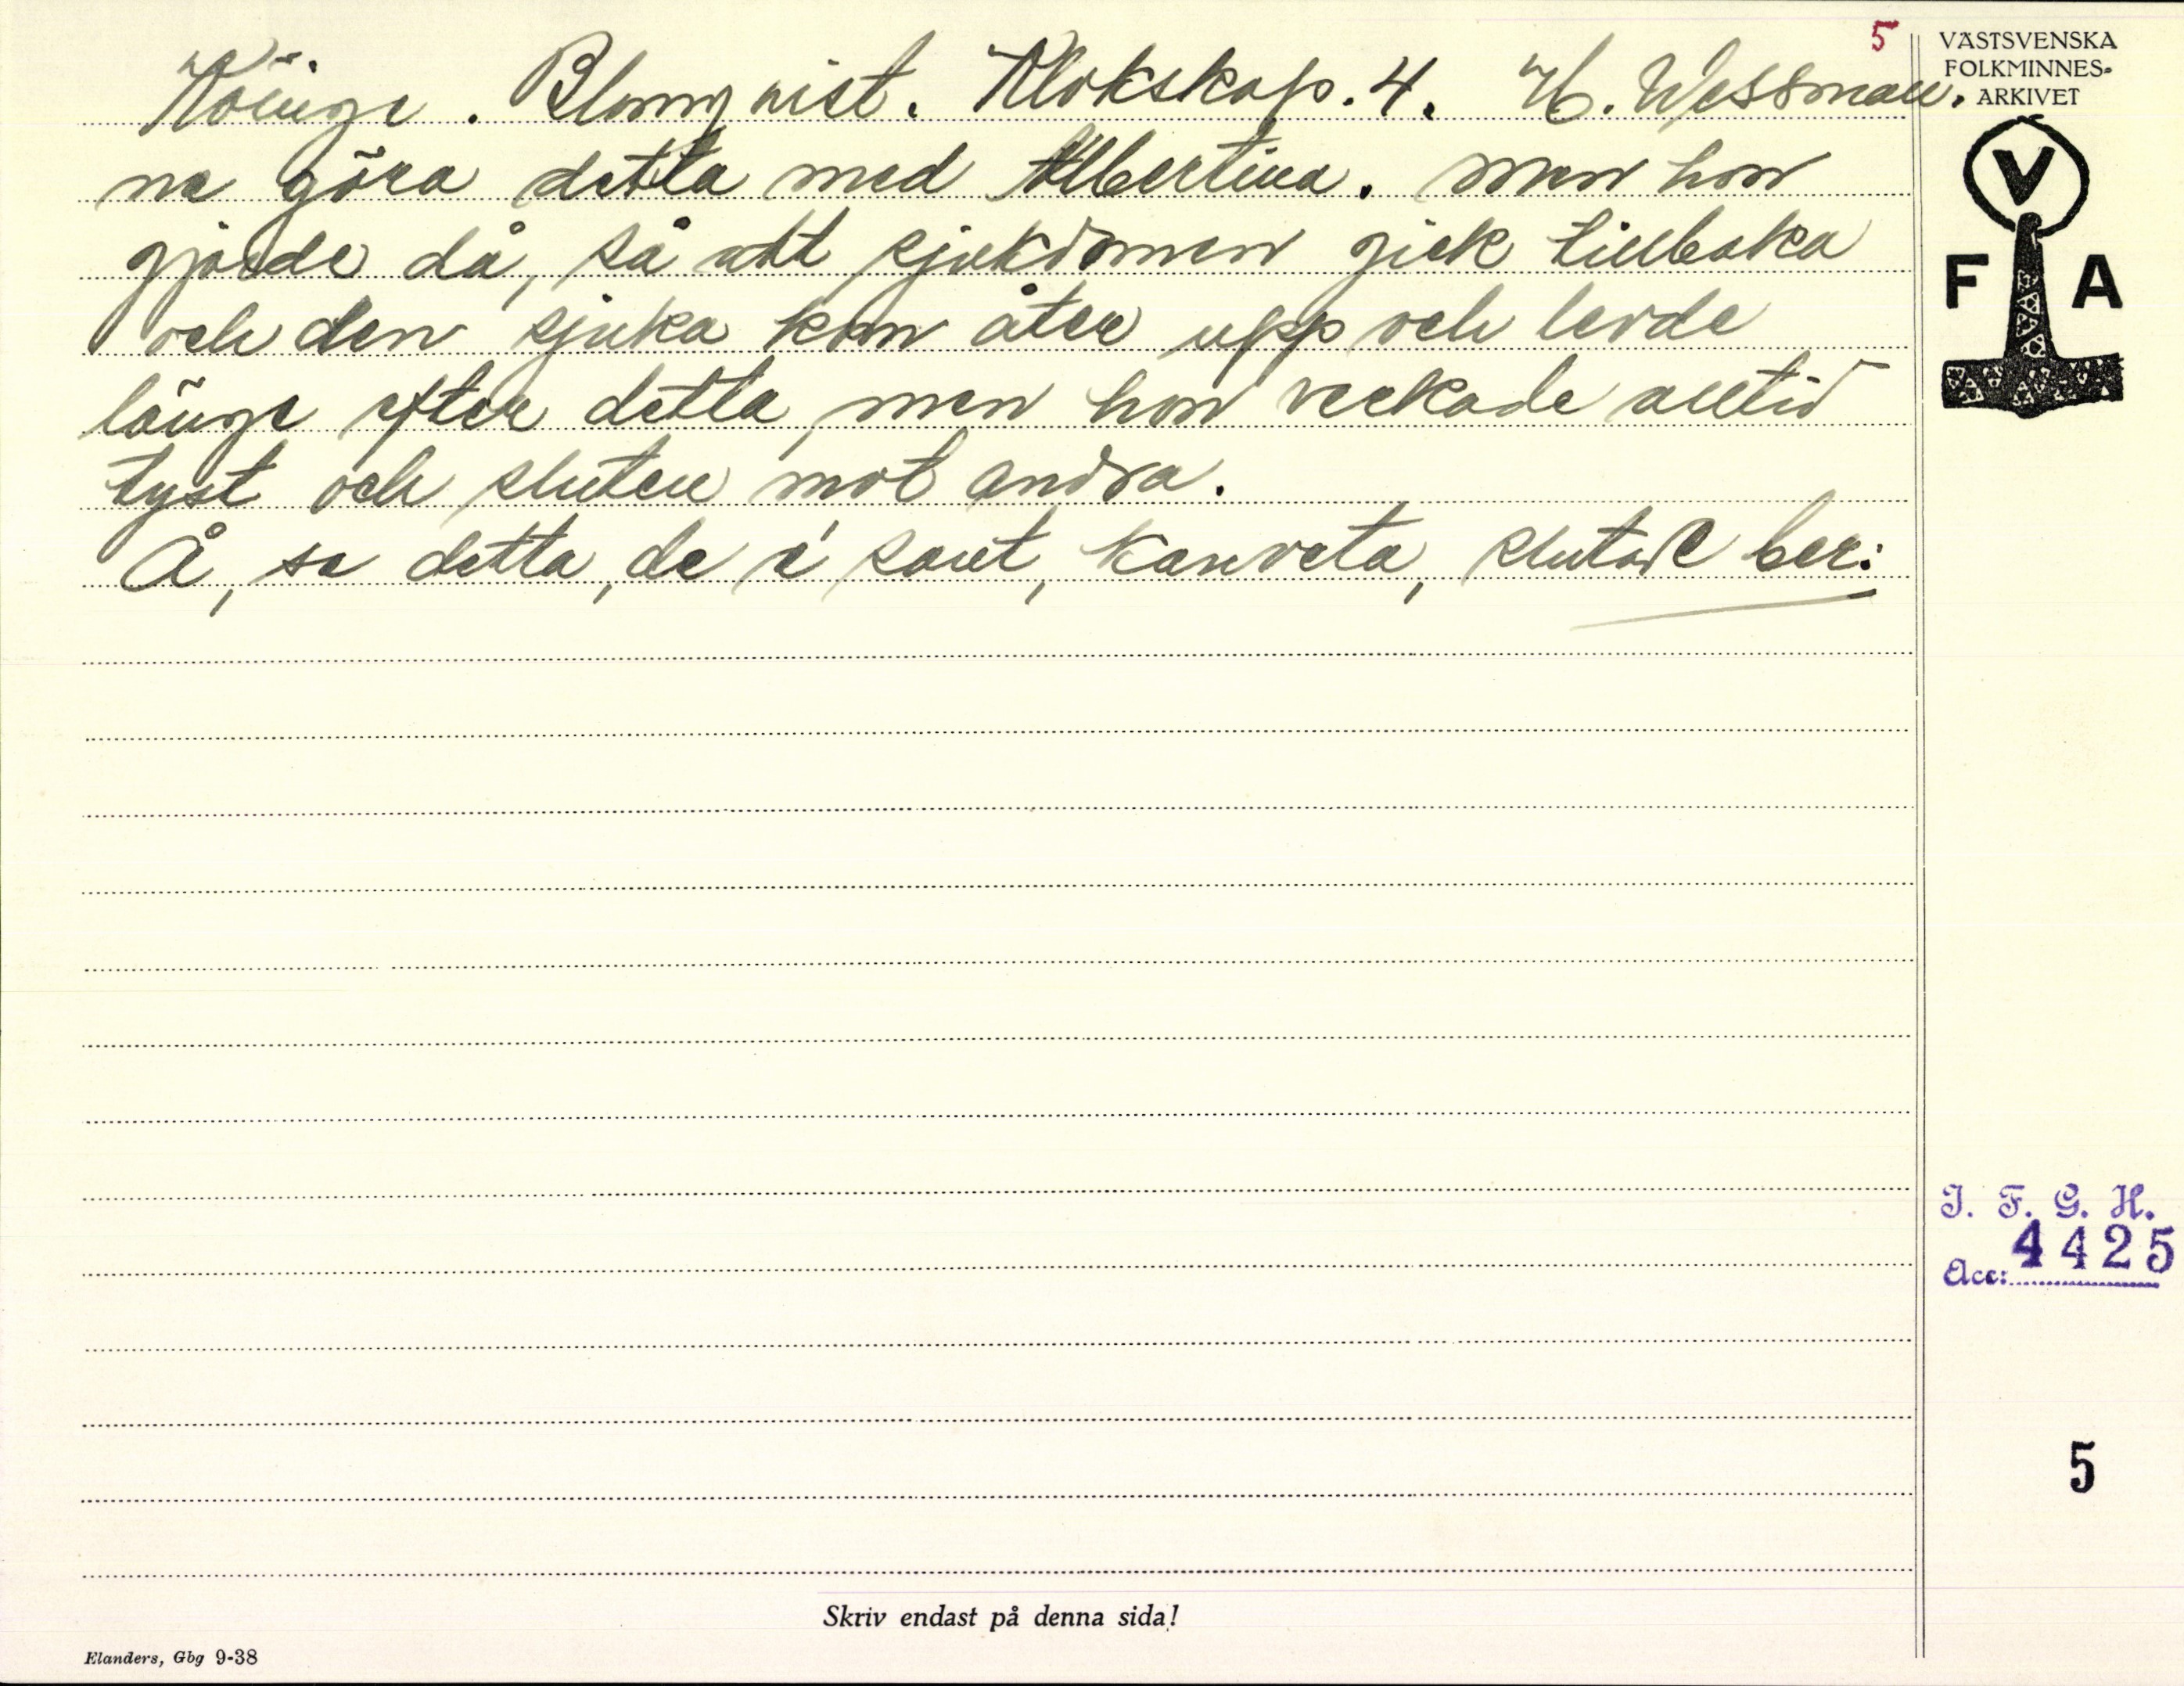 5
VÄSTSVENSKA
FOLKMINNES-
ARKIVET
Köinge. Blomqvist. Klokskap. 4. H. Wessman.
V
F A
ne göra detta med Albertina. men hon
gjorde då, så att sjukdomen gick tillbaka
och den sjuka kom åter upp och levde
länge efter detta, men hon verkade alltid
tyst och sluten mot andra.
Å, se detta, de é sant, kanveta, slutade ber:
I. F. G. H.
Acc: 4425
5
Skriv endast på denna sida!
Elanders, Gbg 9-38